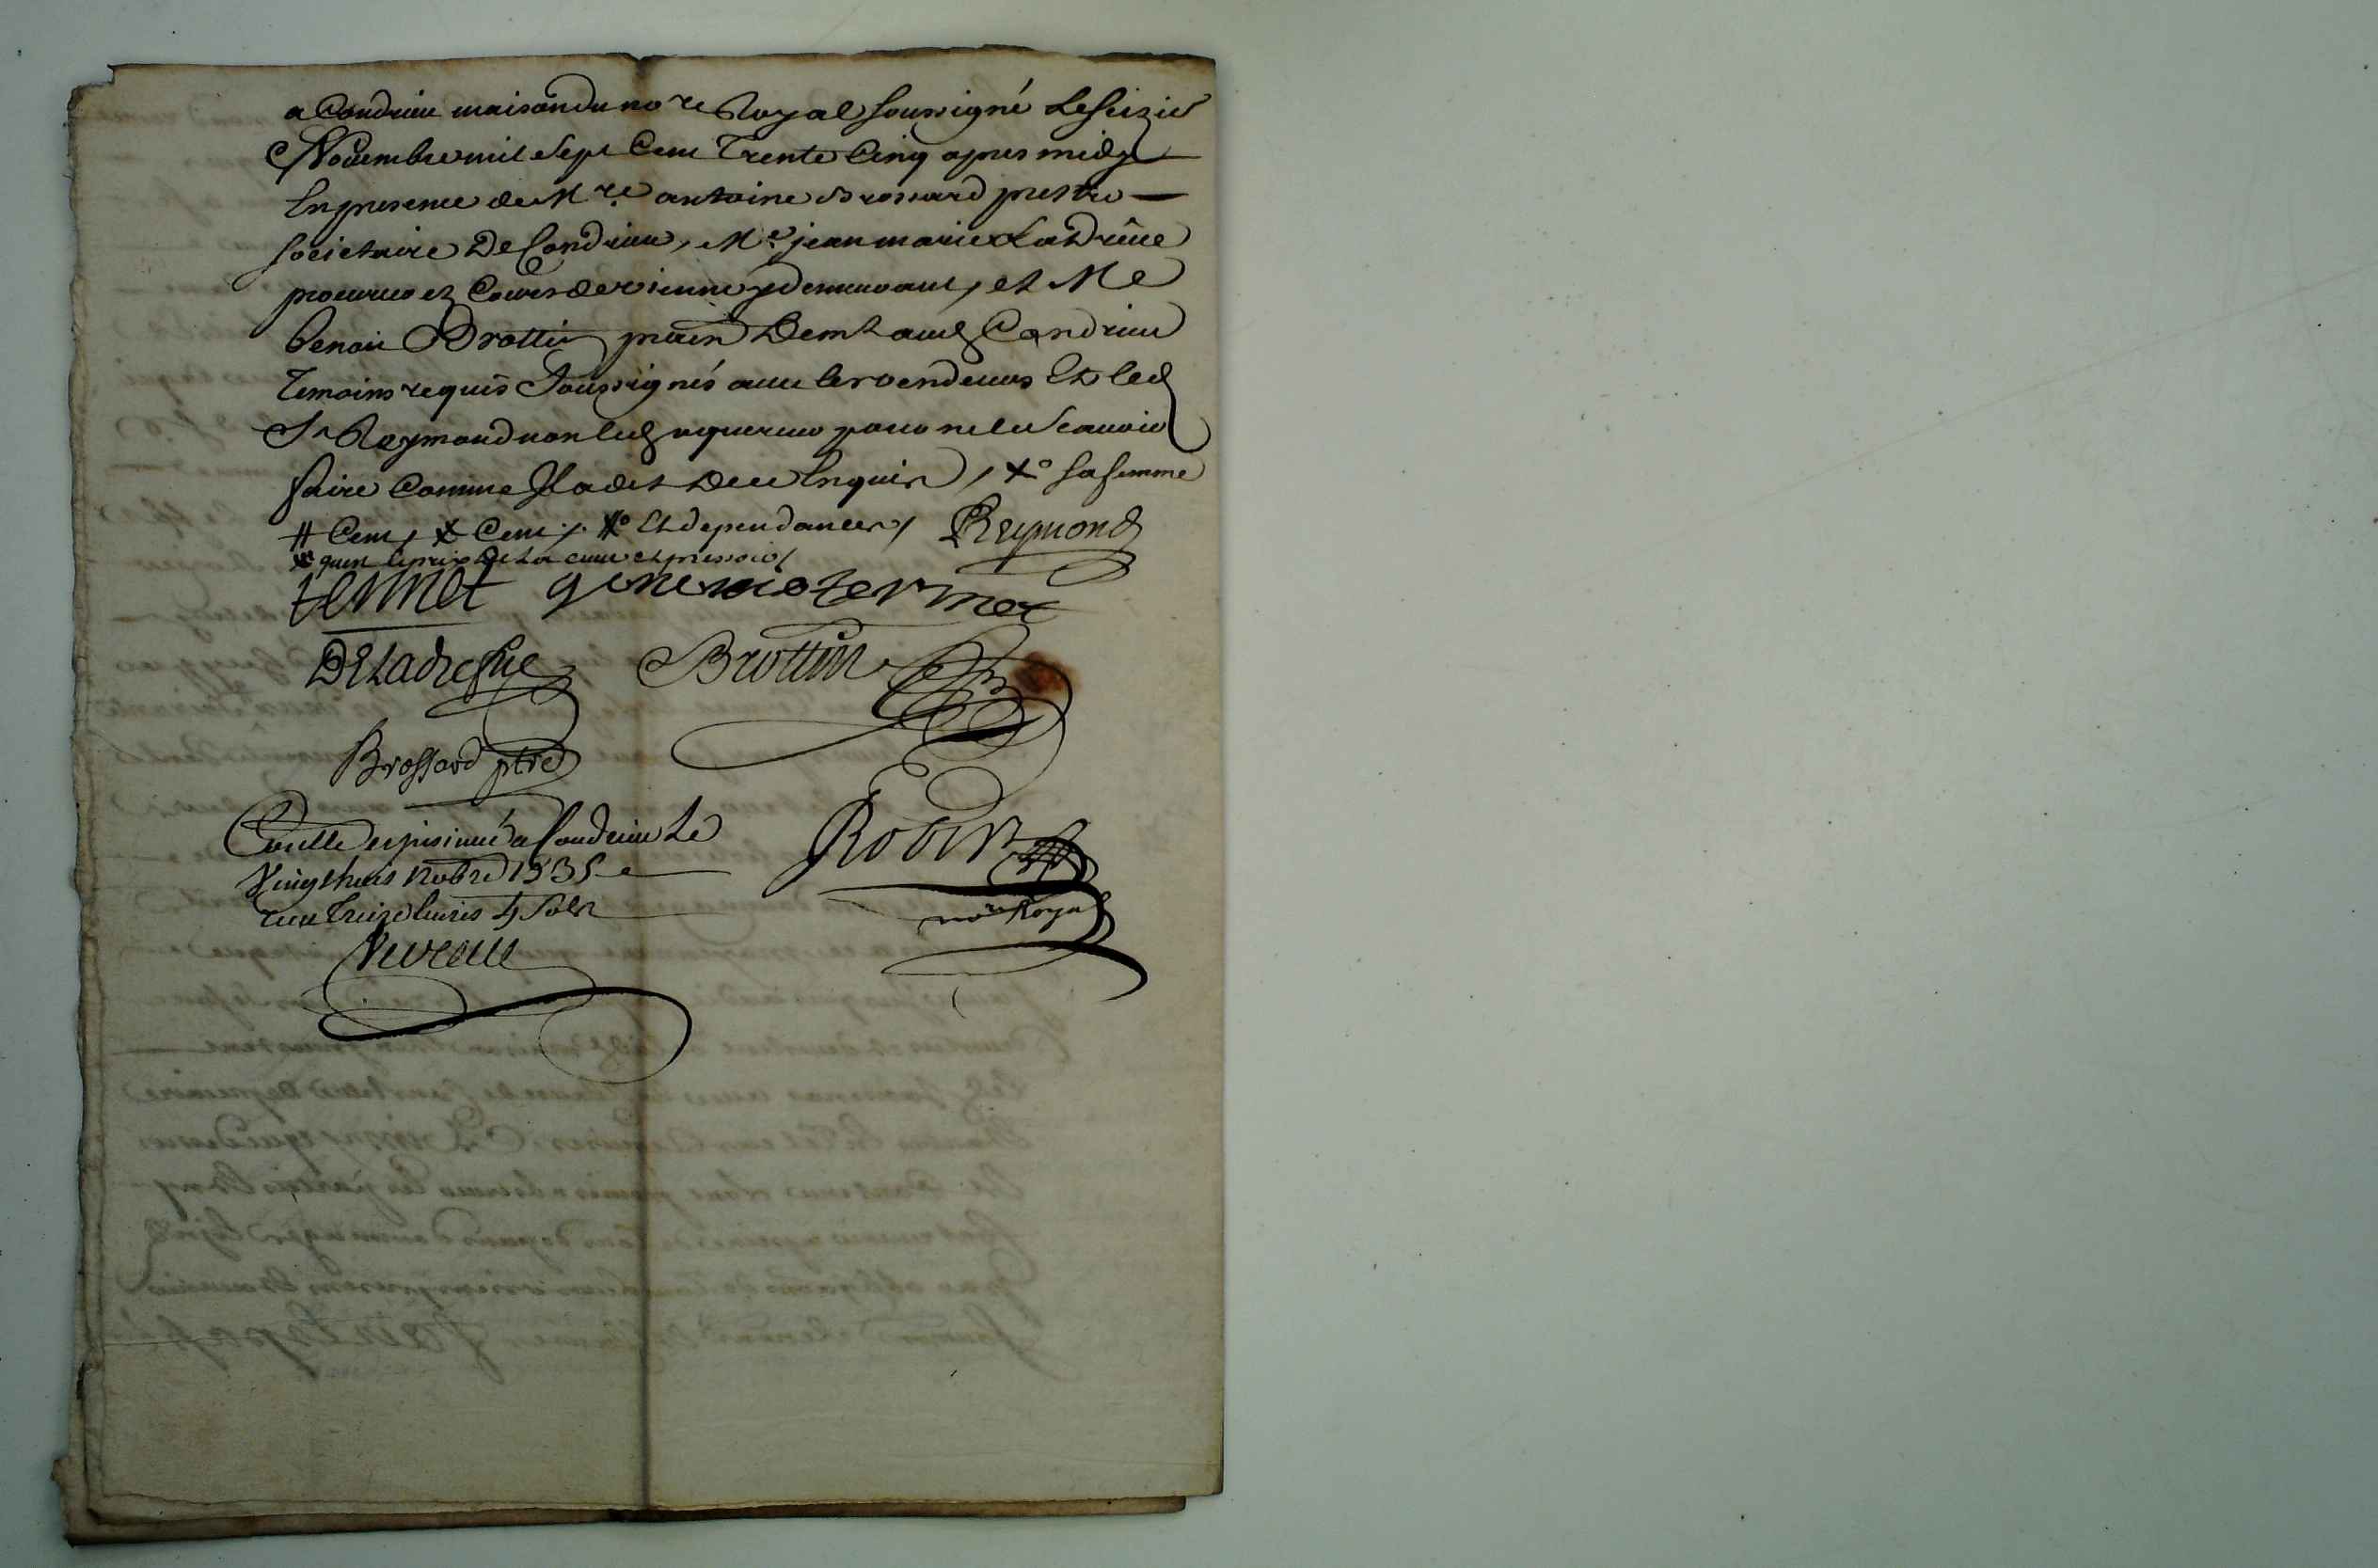 a Condrieu maison du no re Royal soussigné Le seizie
Novembre mil sept Cent Trente Cinq apres midy
En presence de M re antoine Brossard prestre
societaire De Condrieu, Me jean marie Ladrêue
procureur ez Cours de vienne y demeurant, et Me
benoit Brottin demt aud Condrieu
Temoins requis soussignés avec les vendeurs Et led
Sr Reymond non led aquereur pour ne le scavoir
faire Comme Il a dit De ce Enquis, Xo sa femme
# Cent, X Cent, #o Et dependances, Reymond
quen le prix De La cuve et pressoir
termet termet
DeLadreSue Brottin
Brossard ptre
Controllé et insinué a Condrieu Le
Vingt huit Novbre 1735
receu treize livres 4 sols
Robin
no re Royal
Neveau